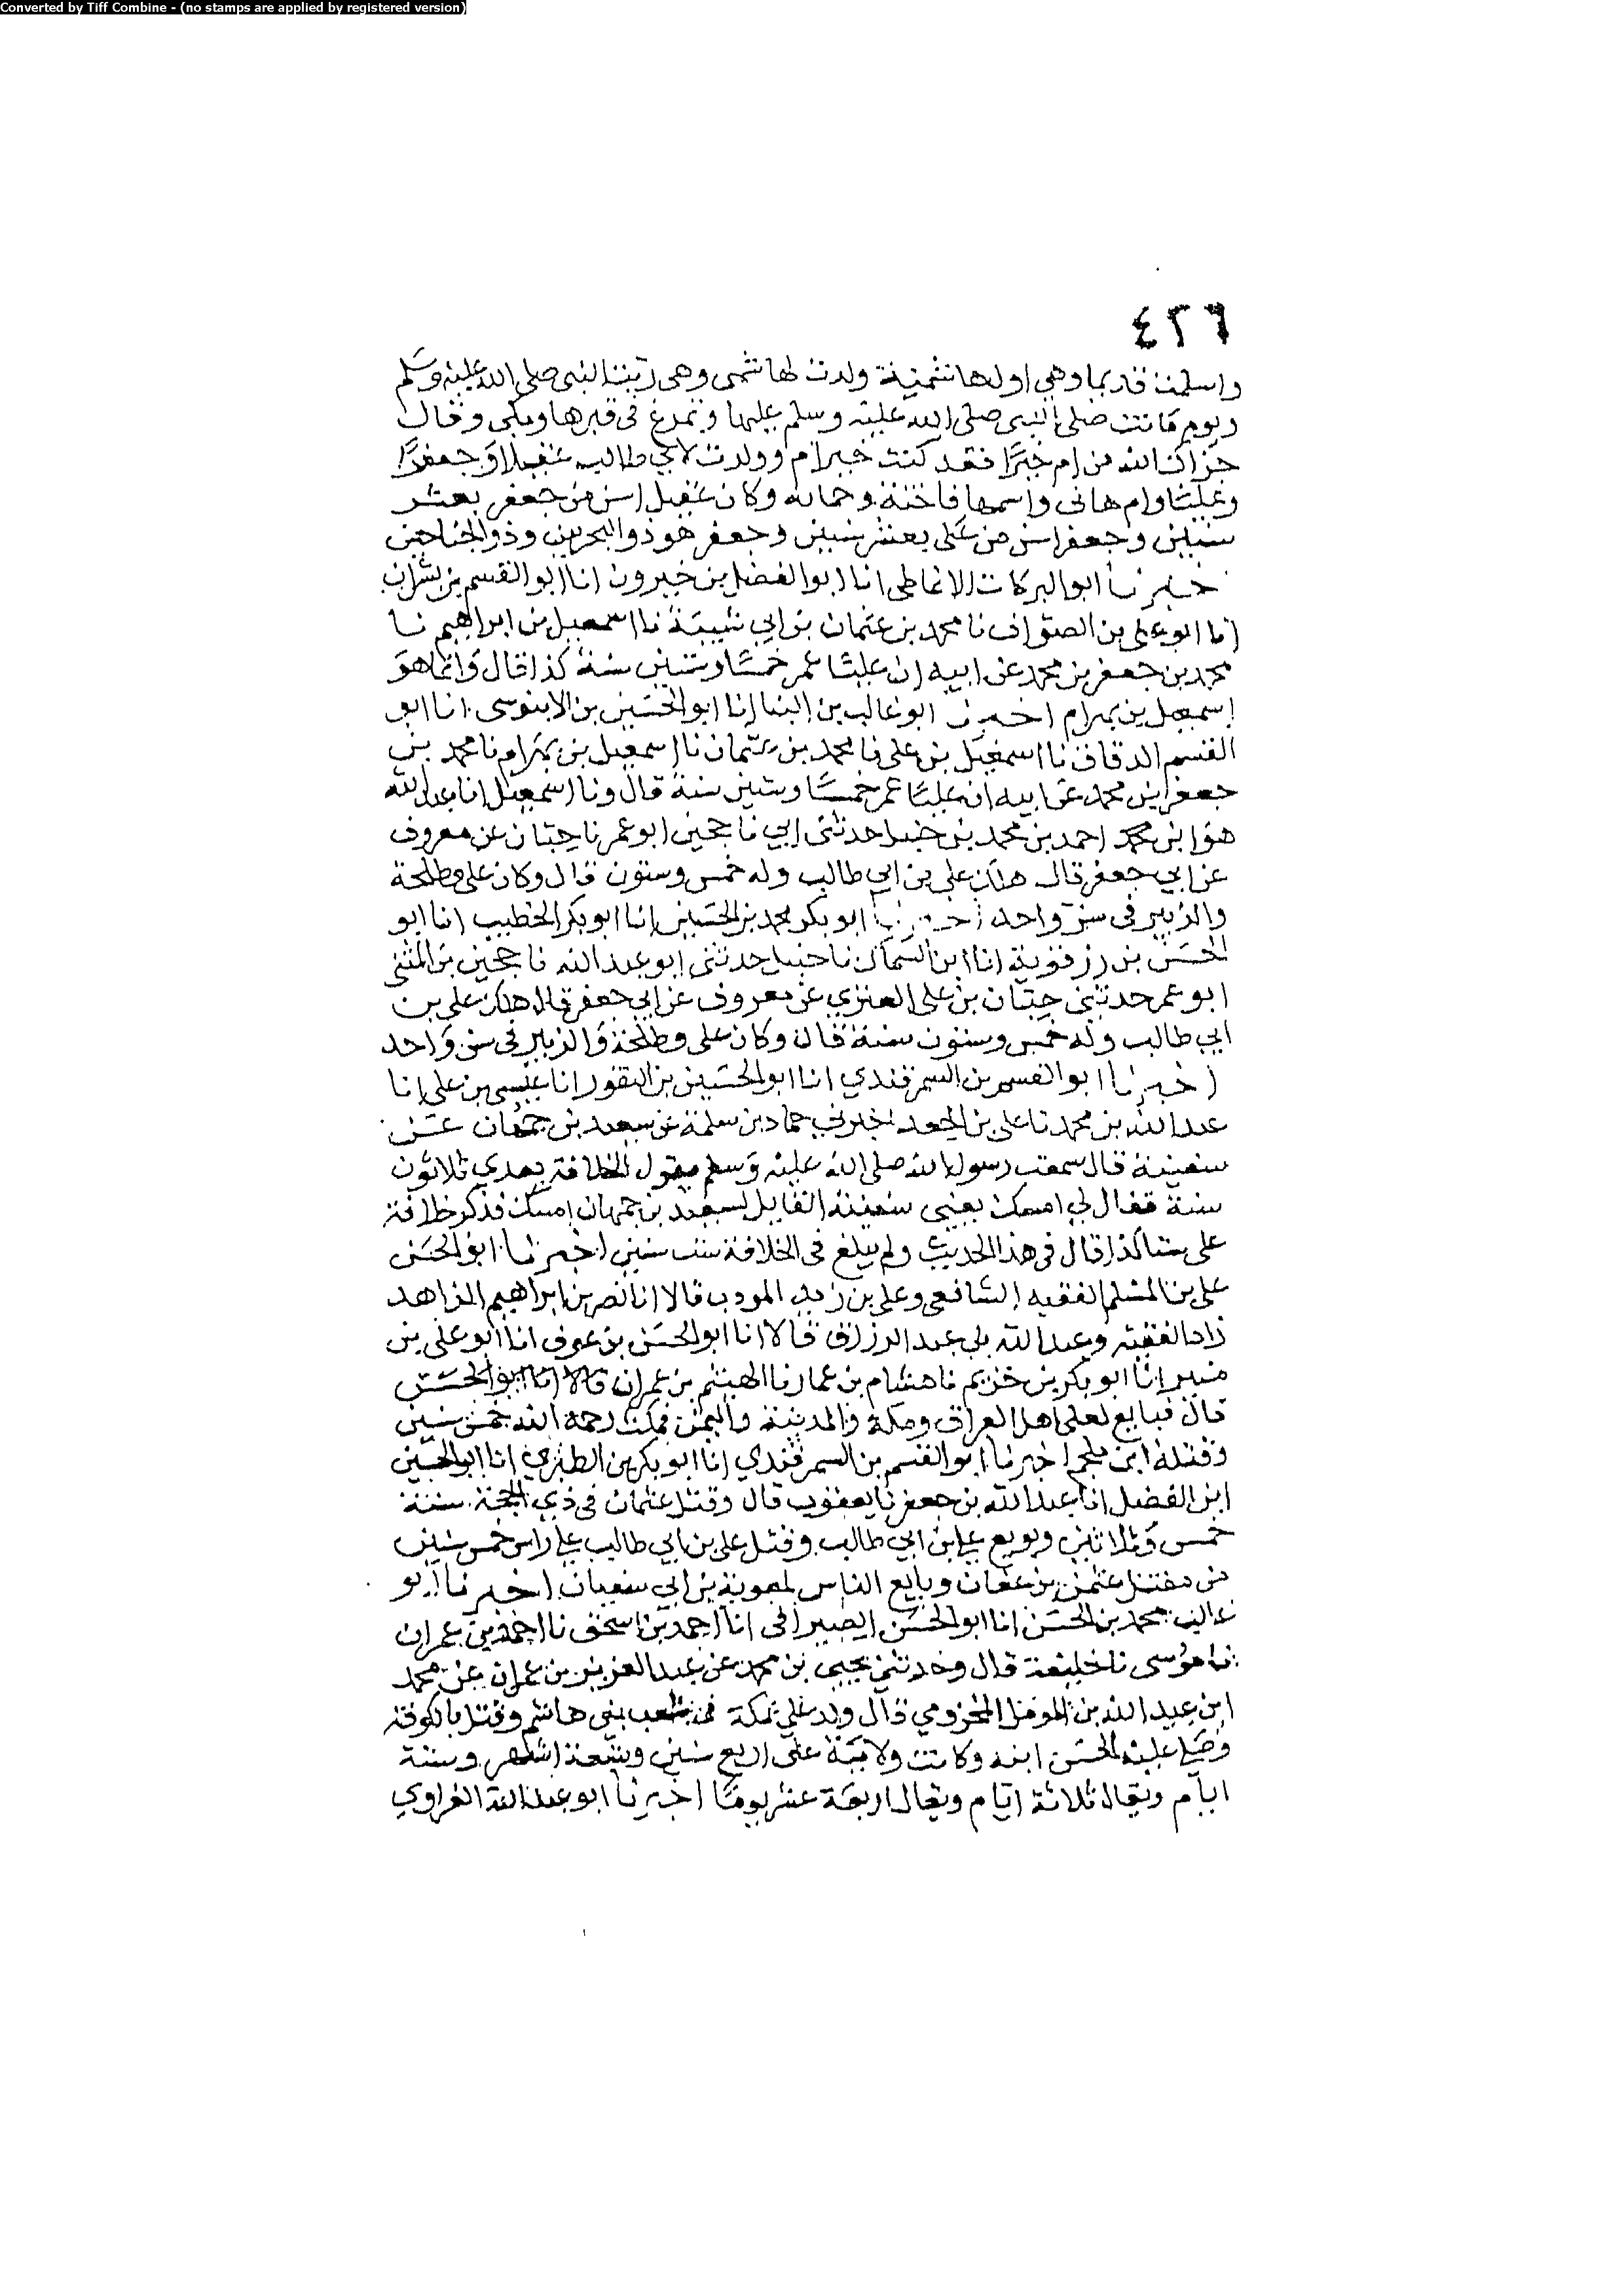 Converted by Tiff Combine - (no stamps are applied by registered version)
٤٢٦
واسلمت قديما وهي اول هاشمية ولدت لهاشمى وهى ربت النبى صلى الله عليه وسلم
ويوم ماتت صلى النبى صلى الله عليه وسلم عليها وتمرغ فى قبرها وبكى وقال
جزاك الله من ام خيرًا فقد كنت خير ام وولدت لابي طالب عقيلا وجعفرًا
وعليًا وام هانى واسمها فاختة وجمانة وكان عقيل اسن من جعفر بعشر
سنين وجعفر اسن من على بعشر سنين وجعفر هو ذو الهجرتين وذو الجناحين
اخبرنا ابو البركات الانماطى انا ابو الفضل بن خيرون انا ابو القسم بن بشران
انا ابو على بن الصواف نا محمد بن عثمان بن ابي شيبة نا اسمعيل بن ابراهيم نا
محمد بن جعفر بن محمد عن ابيه ان عليًا عمر خمسًا وستين سنة كذا قال وانما هو
اسمعيل بن بهرام اخبرنا ابو غالب بن البنا انا ابو الحسين بن الابنوسى انا ابو
القسم الدقاق نا اسمعيل بن على نا محمد بن عثمان نا اسمعيل بن بهرام نا محمد بن
جعفر بن محمد عن ابيه ان عليًا عمر خمسًا وستين سنة قال ونا اسمعيل انا عبد الله
هو ابن محمد احمد بن محمد بن حنبل حدثنى ابي نا حجين ابو عمر نا حبان عن معروف
عن ابي جعفر قال هلك على بن ابي طالب وله خمس وستون قال وكان على وطلحة
والزبير فى سن واحد اخبرنا ابو بكر محمد بن الحسين انا ابو بكر الخطيب انا ابو
الحسن بن رزقوية انا ابن السماك نا حنبل حدثنى ابو عبد الله نا حجين بن المثنى
ابو عمر حدثنى حبان بن على العنزي عن معروف عن ابي جعفر قال هلك على بن
ابي طالب وله خمس وستون سنة قال وكان على وطلحة والزبير فى سن واحد
اخبرنا ابو القسم بن السمرقندي انا ابو الحسين بن النقور انا عيسى بن على انا
عبد الله بن محمد نا على بن الجعد اخبرني حماد بن سلمة عن سعيد بن جمهان عن
سفينة قال سمعت رسول الله صلى الله عليه وسلم يقول الخلافة بعدي ثلاثون
سنة فقال لي امسك يعنى سفينة القايل لسعيد بن جمهان امسك فذكر خلافة
على ستا كذا قال فى هذا الحديث ولم يبلغ فى الخلافة ست سنين اخبرنا ابو الحسن
على بن المسلم الفقيه الشافعى وعلى بن زيد المودب قالا انا نصر بن ابراهيم الزاهد
زاد الفقيه وعبد الله بن عبد الرزاق قالا انا ابو الحسن بن عوف انا ابو على بن
منير انا ابو بكر بن خزيم نا هشام بن عمار نا الهيثم بن عمران قالا انا ابو الحسن
قال فبايع لعلى اهل العراق ومكة والمدينة واليمن فمكث رحمه الله خمس سنين
وقتله ابن ملجم اخبرنا ابو القسم بن السمرقندي انا ابو بكر بن الطبري انا ابو الحسين
ابن الفضل انا عبد الله بن جعفر نا يعقوب قال وقتل عثمان فى ذي الحجة سنة
خمس وثلاثين وبويع على بن ابي طالب وقتل على بن ابي طالب على راس خمس سنين
من مقتل عثمن بن عفان وبايع الناس لمعوية بن ابي سفيان اخبرنا ابو
غالب محمد بن الحسن انا ابو الحسن السيرافى انا احمد بن اسحق نا احمد بن عمران
نا موسى نا خليفة قال وحدثنى يحيى بن محمد عن عبد العزيز بن عمران عن محمد
ابن عبد الله بن المومل المخزومي قال ولد على بمكة فى شعب بنى هاشم وقتل بالكوفة
وصلى عليه الحسن ابنه وكانت ولاية على اربع سنين وتسعة اشهر وستة
ايام ويقال ثلاثة ايام ويقال اربعة عشر يومًا اخبرنا ابو عبد الله الفراوي